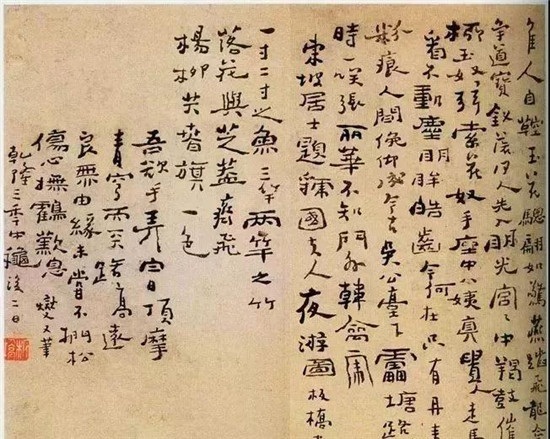 佳人自鞚玉花驄翩如驚燕踏飛龍金
爭道寶釵落何人先入明光宮宮中羯鼓催
柳玉奴弦索花奴手座中八姨真貴人走馬
看不動塵明眸皓齒今何在只有丹青
痕人間俯仰成今古吳公臺下雷塘路
時一笑張麗華不知門外韓擒虎
東坡居士題虢國夫人夜游圖 板橋
一寸二寸之魚三竿兩竿之竹
落花與芝蓋飛
楊柳共春旗一色
吾欲手弄白日頂摩
青穹而天路高遠
良無由緣未嘗不松
傷心撫鶴歎息 燮又筆
乾隆三年中秋後二日